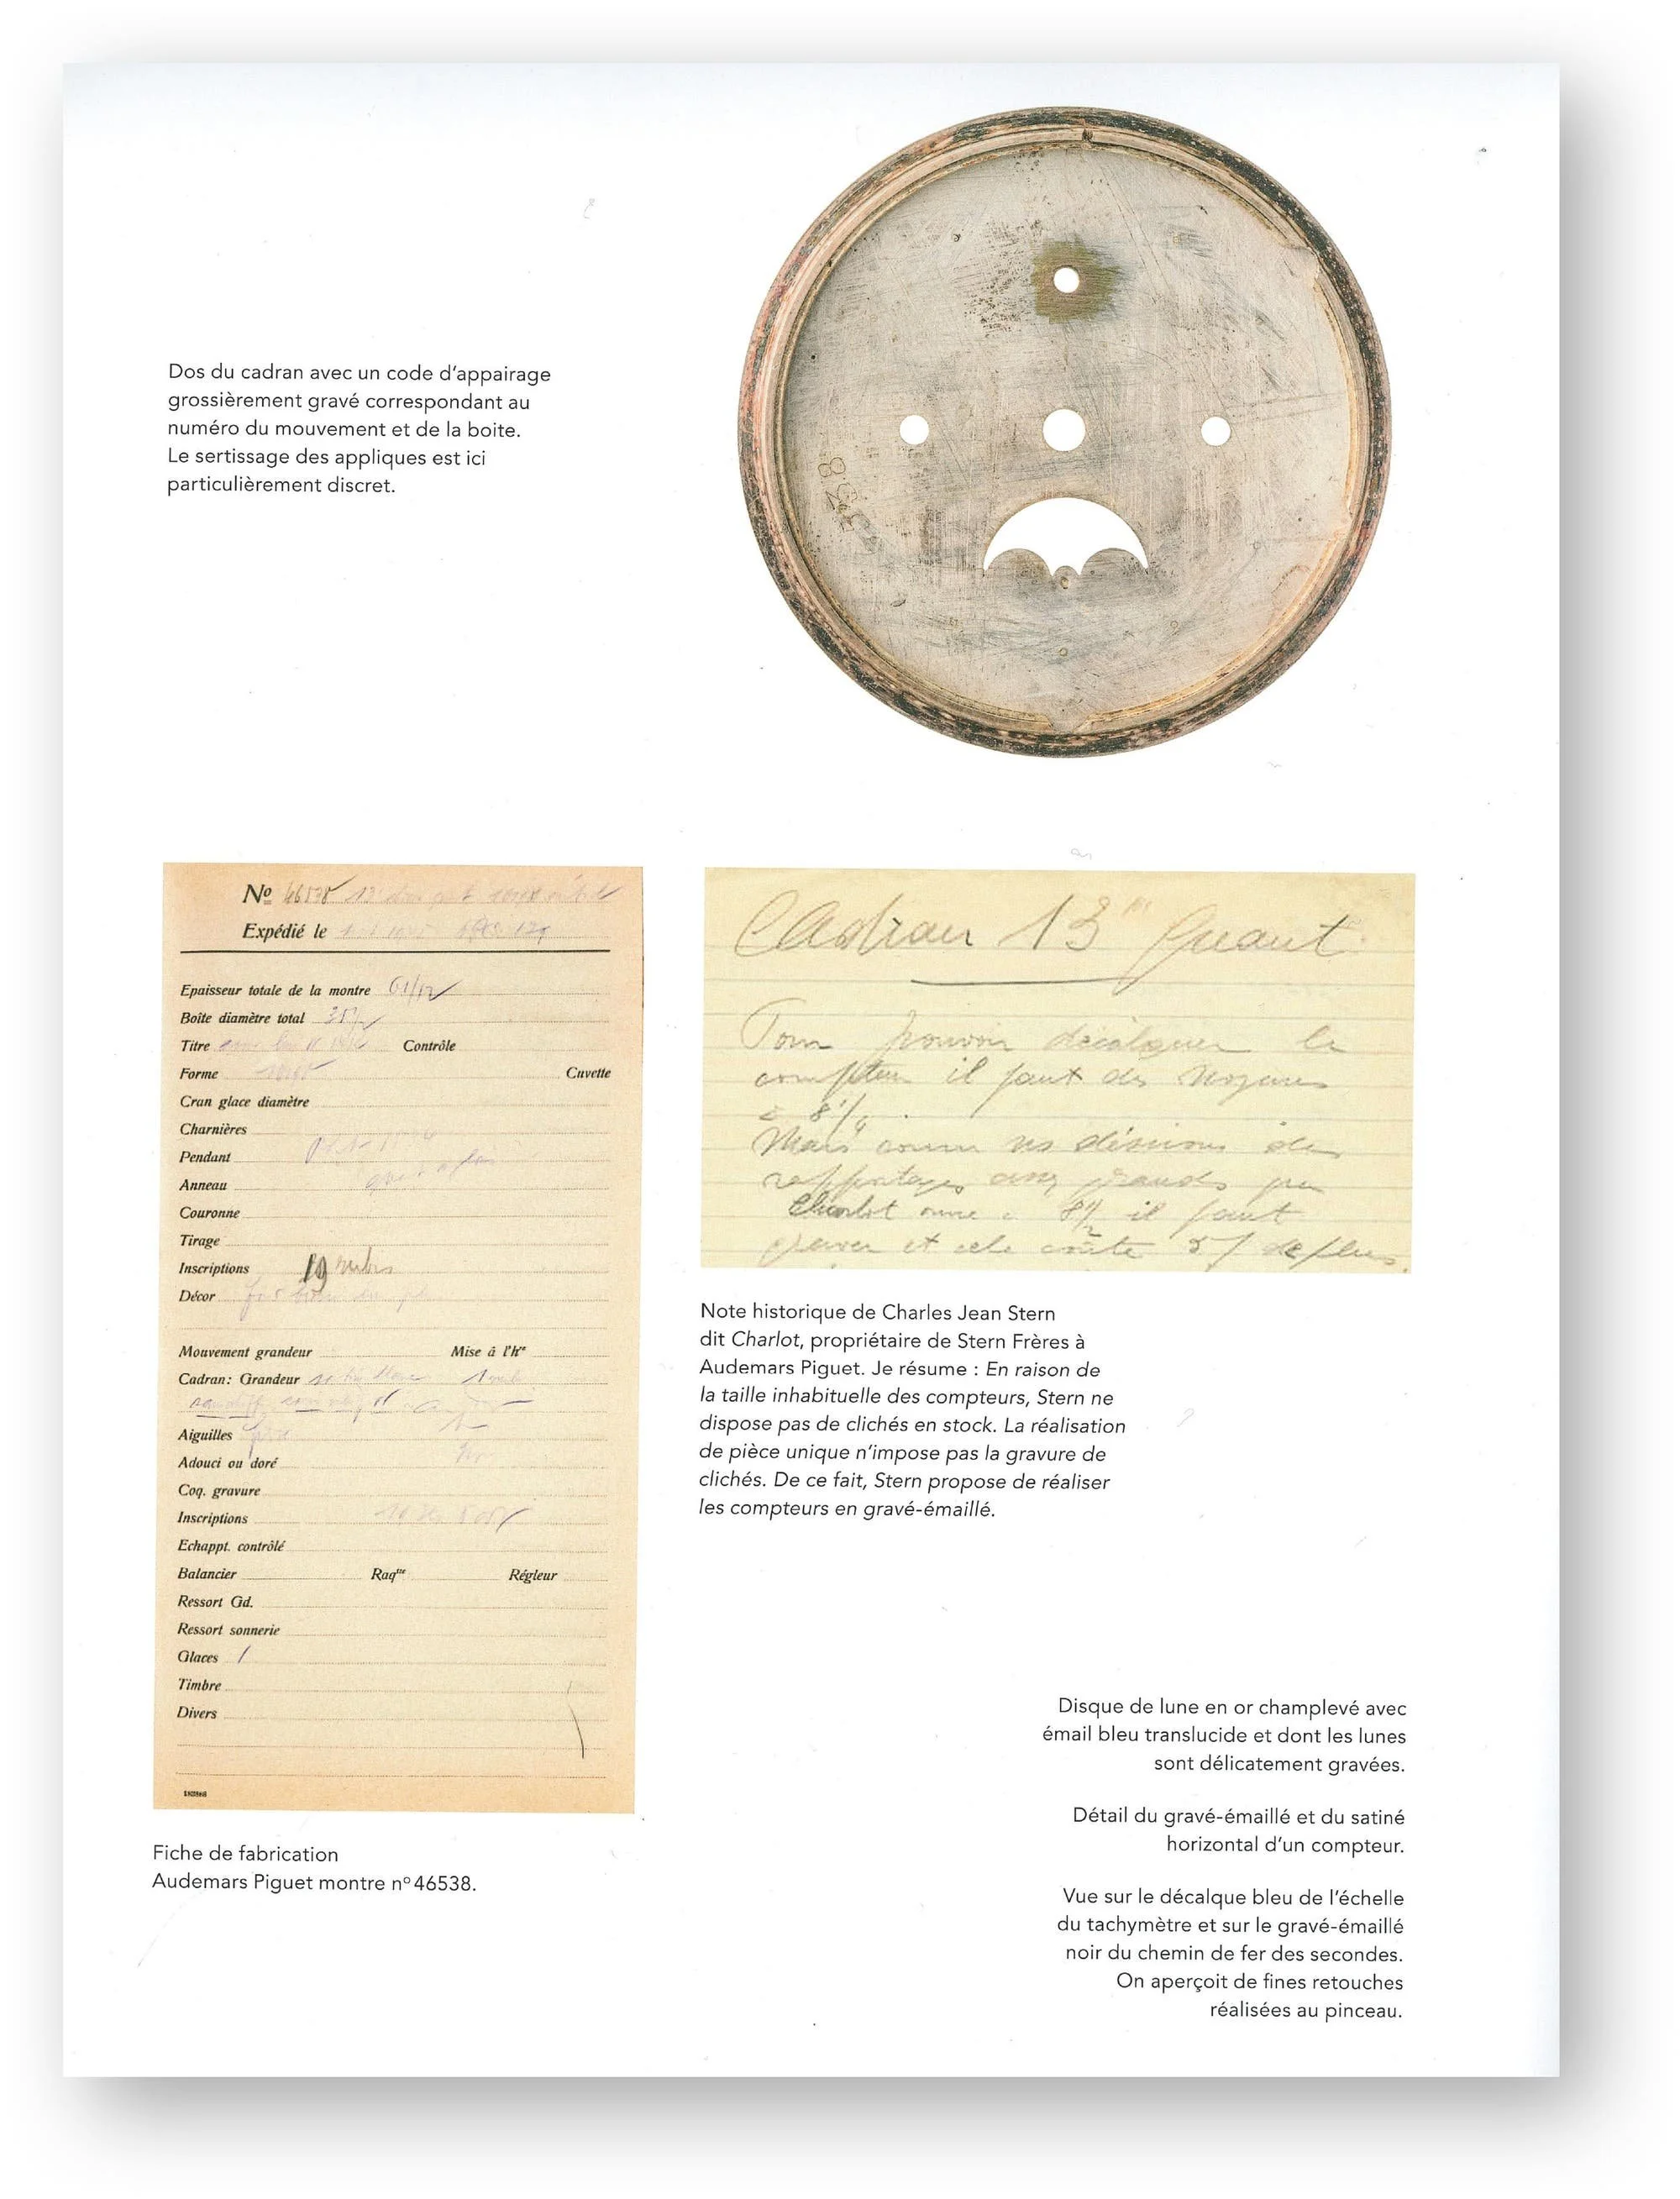 Dos du cadran avec un code d'appairage
grossièrement gravé correspondant au
numéro du mouvement et de la boite.
Le sertissage des appliques est ici
particulièrement discret.
Nº 46538
Expédié le
Epaisseur totale de la montre
Boîte diamètre total
Titre Contrôle
Forme Cuvette
Cran glace diamètre
Charnières
Pendant
Anneau
Couronne
Tirage
Inscriptions 19 rubis
Décor
Mouvement grandeur Mise à l'hre
Cadran: Grandeur
Aiguilles
Adouci ou doré
Coq. gravure
Inscriptions
Echappt. contrôlé
Balancier Raqtte Régleur
Ressort Gd.
Ressort sonnerie
Glaces
Timbre
Divers
Fiche de fabrication
Audemars Piguet montre nº 46538.
Cadran 13''' Quant
Pour pouvoir décalquer le
compteur il faut des noyaures
8 1/4
Mais comme ns désirions des
grands que
Charlot 8 1/2 il faut
graver et cela coûte de plus
Note historique de Charles Jean Stern
dit Charlot, propriétaire de Stern Frères à
Audemars Piguet. Je résume : En raison de
la taille inhabituelle des compteurs, Stern ne
dispose pas de clichés en stock. La réalisation
de pièce unique n'impose pas la gravure de
clichés. De ce fait, Stern propose de réaliser
les compteurs en gravé-émaillé.
Disque de lune en or champlevé avec
émail bleu translucide et dont les lunes
sont délicatement gravées.
Détail du gravé-émaillé et du satiné
horizontal d'un compteur.
Vue sur le décalque bleu de l'échelle
du tachymètre et sur le gravé-émaillé
noir du chemin de fer des secondes.
On aperçoit de fines retouches
réalisées au pinceau.